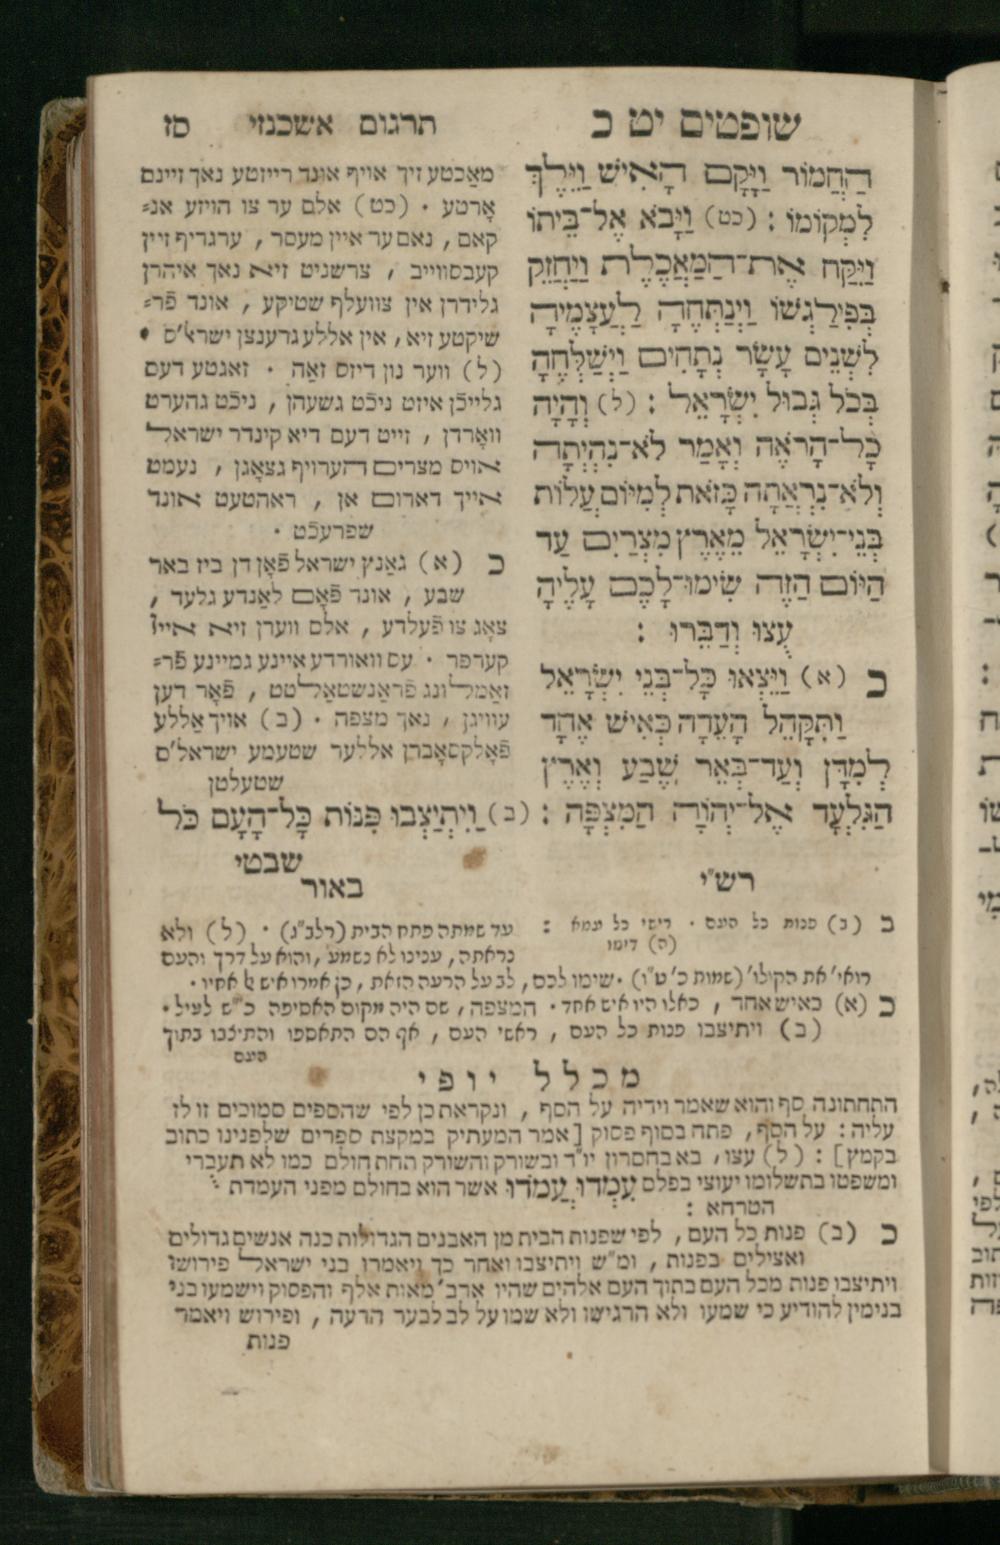 שופטים יט כ
תרגום אשכנזי
סז
הַחֲמוֹר וַיָּקָם הָאִישׁ וַיֵּלֶךְ
לִמְקוֹמוֹ : (כט) וַיָּבֹא אֶל־בֵּיתוֹ
וַיִּקַּח אֶת־הַמַּאֲכֶלֶת וַיַּחֲזֵק
בְּפִילַגְשׁוֹ וַיְנַתְּחֶהָ לַעֲצָמֶיהָ
לִשְׁנֵים עָשָׂר נְתָחִים וַיְשַׁלְּחֶהָ
בְּכֹל גְּבוּל יִשְׂרָאֵל : (ל) וְהָיָה
כָל־הָרֹאֶה וְאָמַר לֹא־נִהְיְתָה
וְלֹא־נִרְאֲתָה כָּזֹאת לְמִיּוֹם עֲלוֹת
בְּנֵי־יִשְׂרָאֵל מֵאֶרֶץ מִצְרַיִם עַד
הַיּוֹם הַזֶּה שִׂימוּ־לָכֶם עָלֶיהָ
עֻצוּ וְדַבֵּרוּ :
כ (א) וַיֵּצְאוּ כָּל־בְּנֵי יִשְׂרָאֵל
וַתִּקָּהֵל הָעֵדָה כְּאִישׁ אֶחָד
לְמִדָּן וְעַד־בְּאֵר שֶׁבַע וְאֶרֶץ
הַגִּלְעָד אֶל־יְהוָֹה הַמִּצְפָּה : (ב) וַיִּתְיַצְּבוּ פִּנּוֹת כָּל־הָעָם כֹּל
שבטי
מאַכטע זיך אויף אונד רייזטע נאך זיינם
אָרטע . (כט) אלם ער צו הויזע אנ=
קאם , נאם ער איין מעסר , ערגריף זיין
קעבסווייב , צרשניט זיא נאך איהרן
גלידרן אין צוועלף שטיקע , אונד פֿר=
שיקטע זיא , אין אללע גרענצן ישראל'ס .
(ל) ווער נון דיזס זאַה . זאגטע דעם
גלייכֿן איזט ניכֿט גשעהן , ניכֿט גהערט
וואָרדן , זייט דעם דיא קינדר ישראל
אויס מצרים הערויף גצאָגן , נעמט
אייך דארום אן , ראהטעט אונד
שפרעכֿט .
כ (א) גאַנץ ישראל פֿאָן דן ביז באר
שבע , אונד פֿאָם לאַנדע גלעד ,
צאָג צו פֿעלדע , אלם ווערן זיא איין
קערפר . עס וואורדע איינע גמיינע פֿר=
זאַמלונג פֿראַנשטאַלטט , פֿאָר דען
עוויגן , נאך מצפה . (ב) אויך אַללע
פֿאָלקסאָברן אללער שטעמע ישראל'ם
שטעלטן
רש"י
ב (ב) פנות כל העם . רישי כל עמא :
(ה) דימו
באור
עד שמתה פתח הבית (רלב"ג) . (ל) ולא
נראתה , ענינו לא נשמע , והוא על דרך והעם
רואי' את הקולו' (שמות כ' ט"ו) . שימו לכם , לב על הרעה הזאת , כן אמרו איש אל אחיו .
כ (א) כאיש אחד , כאלו היו איש אחד . המצפה , שם היה מקום האסיפה כ"ש לעיל .
(ב) ויתיצבו פנות כל העם , ראשי העם , אף הם התאספו והתיצבו בתוך
העם
מכלל יופי
התחתונה סף והוא שאמר וידיה על הסף , ונקראת כן לפי שהספים סמוכים זו לז
עליה : על הסף , פתח בסוף פסוק [אמר המעתיק במקצת ספרים שלפנינו כתוב
בקמץ] : (ל) עצו , בא בחסרון יו"ד ובשורק והשורק תחת חולם כמו לא תעברי
ומשפטו בתשלומו יעוצי בפלם עִמְדוּ עֲמֹדוּ אשר הוא בחולם מפני העמדת
הטרחא :
כ (ב) פנות כל העם , לפי שפנות הבית מן האבנים הגדולות כנה אנשים גדולים
ואצילים בפנות , ומ"ש ויתיצבו ואחר כך ויאמרו בני ישראל פירושו
ויתיצבו פנות מכל העם בתוך העם אלהים שהיו ארב' מאות אלף והפסוק וישמעו בני
בנימין להודיע כי שמעו ולא הרגישו ולא שמו על לב לבער הרעה , ופירוש ויאמר
פנות